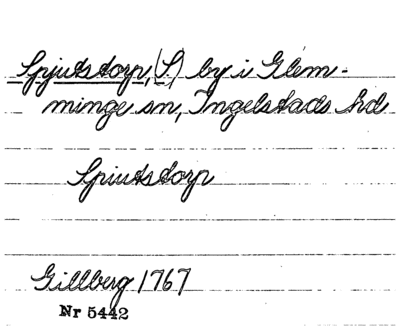 Spjutstorp, (S.) by i Glem-
minge sn, Ingelstads hd
Spiutstorp
Gillberg 1767
Nr 5442